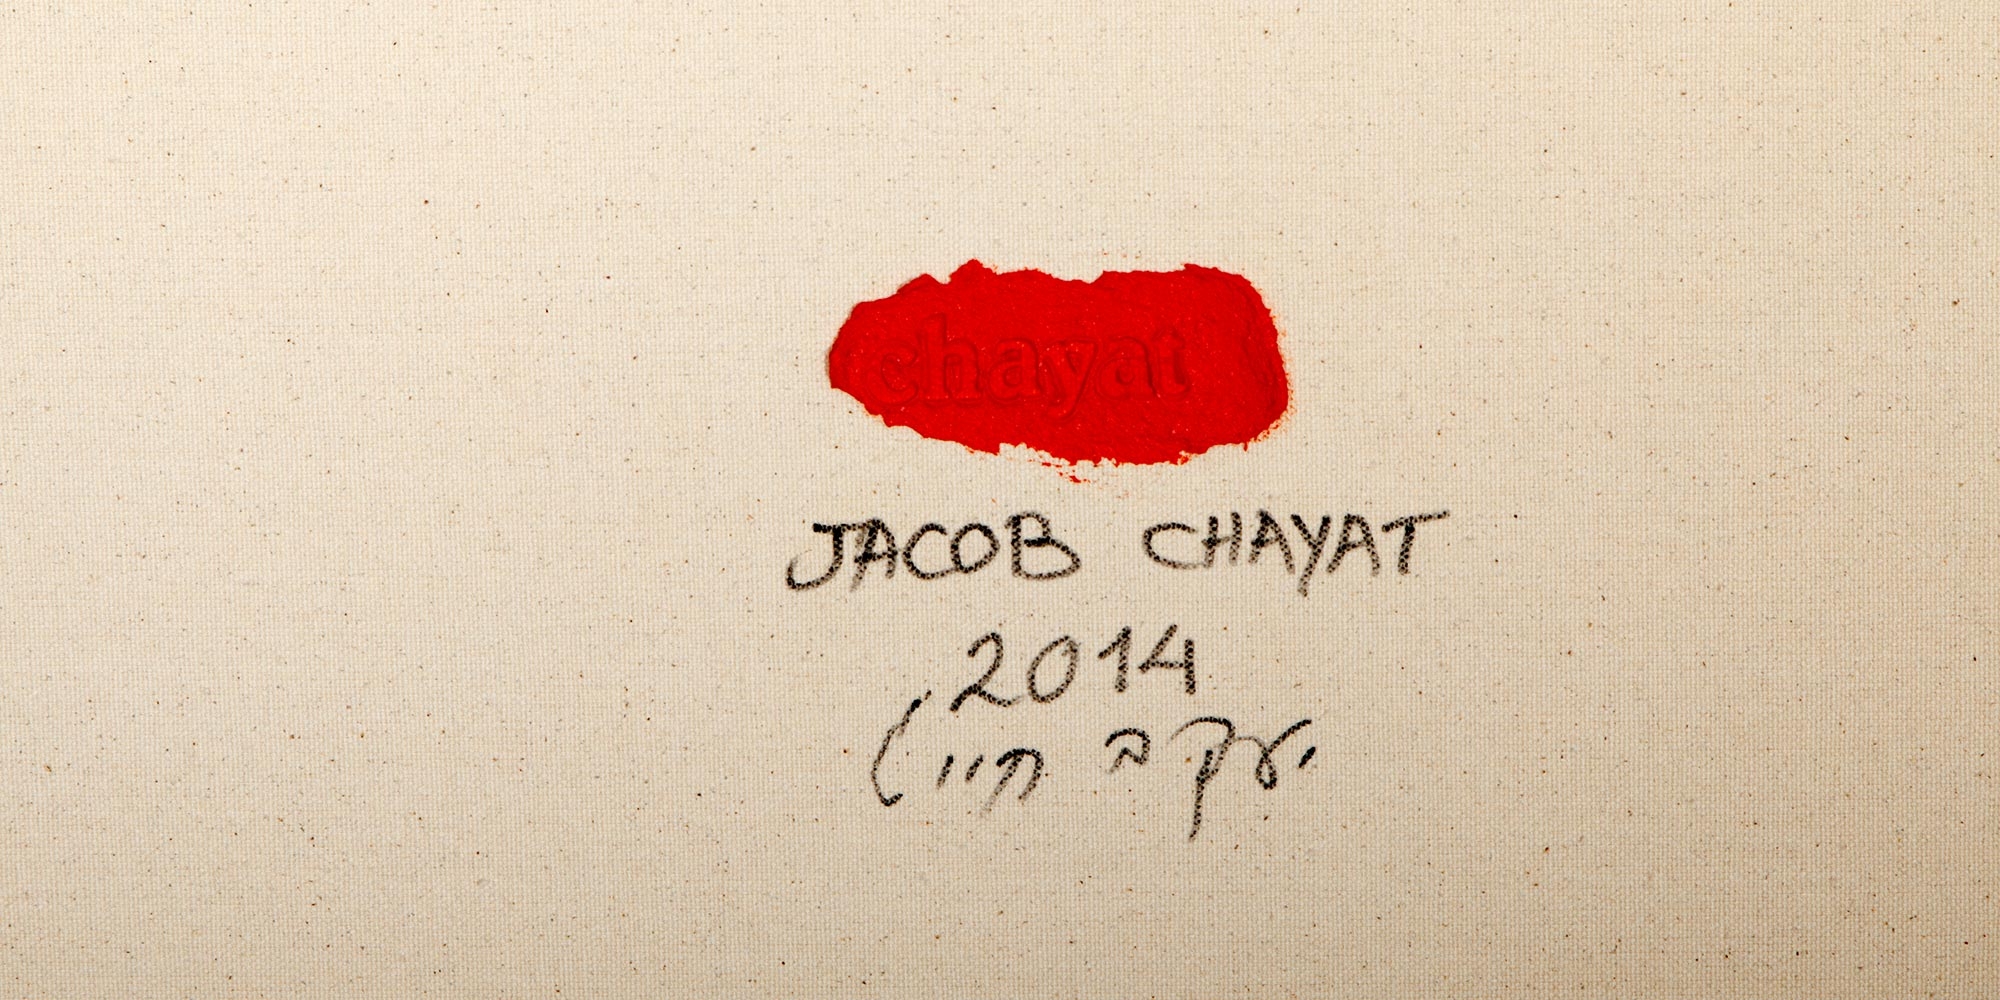 chayat
JACOB CHAYAT
2014
יעקב חייט